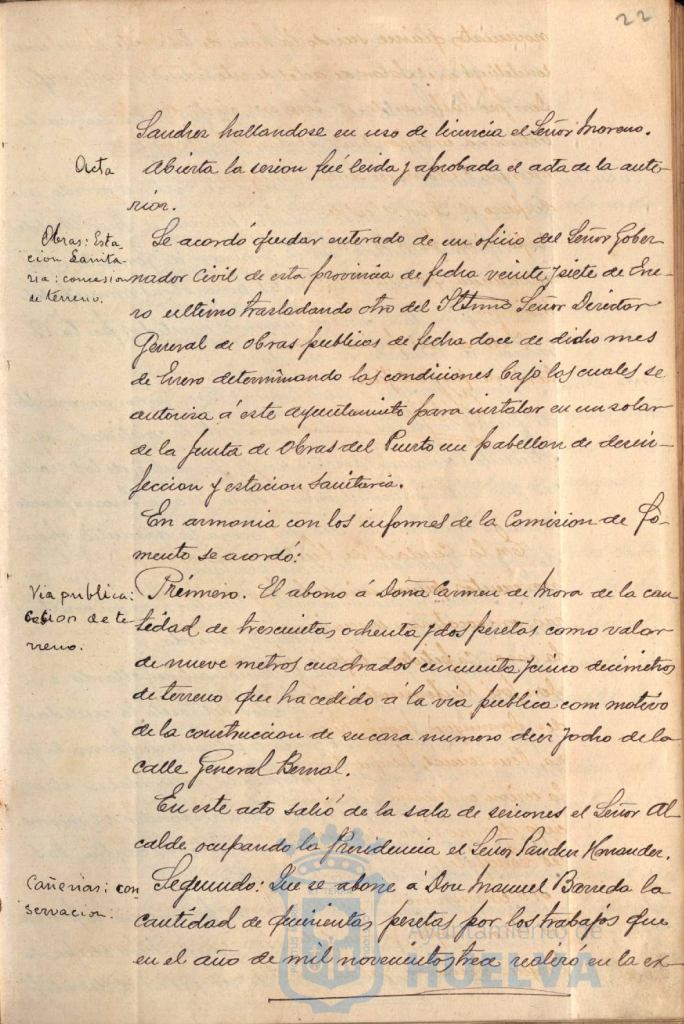 22
Sanchez hallandose en uso de licencia el Señor Moreno.
Acta
Abierta la sesion fué leida y aprobada el acta de la ante-
rior.
Obras: Esta-
cion Sanita-
ria: concesion
de terreno.
Se acordó quedar enterado de un oficio del Señor Gober-
nador Civil de esta provincia de fecha veinte y siete de Ene-
ro ultimo trasladando otro del Iltmo Señor Director
General de Obras publicas de fecha doce de dicho mes
de Enero determinando las condiciones bajo las cuales se
autoriza á este Ayuntamiento para instalar en un solar
de la Junta de Obras del Puerto un pabellon de desin-
feccion y estacion sanitaria.
En armonia con los informes de la Comision de Fo-
mento se acordó:
Via publica:
cesion de te-
rreno.
Primero. El abono á Doña Carmen de Mora de la can-
tidad de trescientas ochenta y dos pesetas como valor
de nueve metros cuadrados cincuenta y cinco decimetros
de terreno que ha cedido á la via publica con motivo
de la construccion de su casa numero diez y ocho de la
calle General Bernal.
En este acto salió de la sala de sesiones el Señor Al
calde ocupando la Presidencia el Señor Hernandez.
Cañerias: con
servacion:
Segundo: Que se abone á Don Manuel Barreda la
cantidad de quinientas pesetas por los trabajos que
en el año de mil novecientos trece realizó en la ex-
Ayuntamiento de
HUELVA